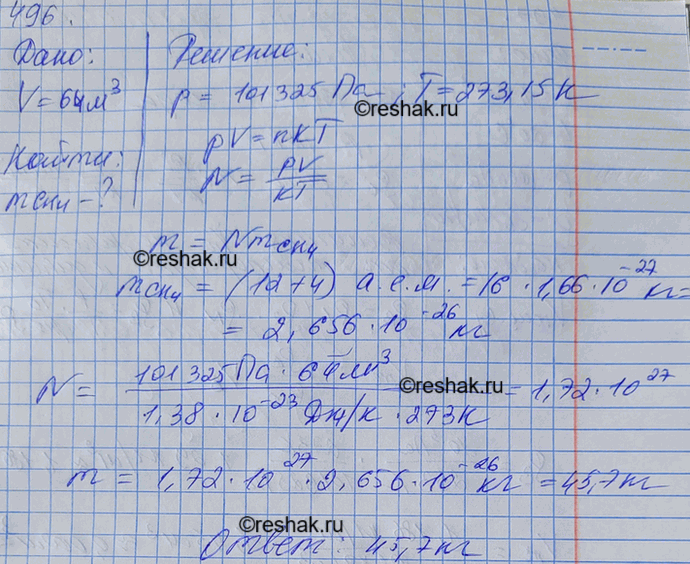 496.
Дано:
V = 64 м³
Найти:
m CH₄ - ?
Решение:
p = 101325 Па ; T = 273,15 К
©reshak.ru
pV = nкT
N = pV / кT
m = Nm CH₄
©reshak.ru
m CH₄ = (12+4) а.е.м. = 16 · 1,66 · 10⁻²⁷ кг =
= 2,656 · 10⁻²⁶ кг
N = 101325 Па · 64 м³ / 1,38 · 10⁻²³ Дж/К · 273К = 1,72 · 10²⁷
©reshak.ru
m = 1,72 · 10²⁷ · 2,656 · 10⁻²⁶ кг = 45,7 кг
©reshak.ru
Ответ: 45,7 кг